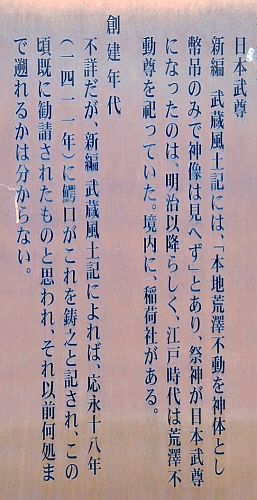 日本武尊
新編 武蔵風土記には、「本地荒澤不動を神体とし
幣吊のみで神像は見へず」とあり、祭神が日本武尊
になったのは、明治以降らしく、江戸時代は荒澤不
動尊を祀っていた。境内に、稲荷社がある。
創建年代
不詳だが、新編 武蔵風土記によれば、応永十八年
(一四一一年)に鰐口がこれを鋳之と記され、この
頃既に勧請されたものと思われ、それ以前何処ま
で遡れるかは分からない。